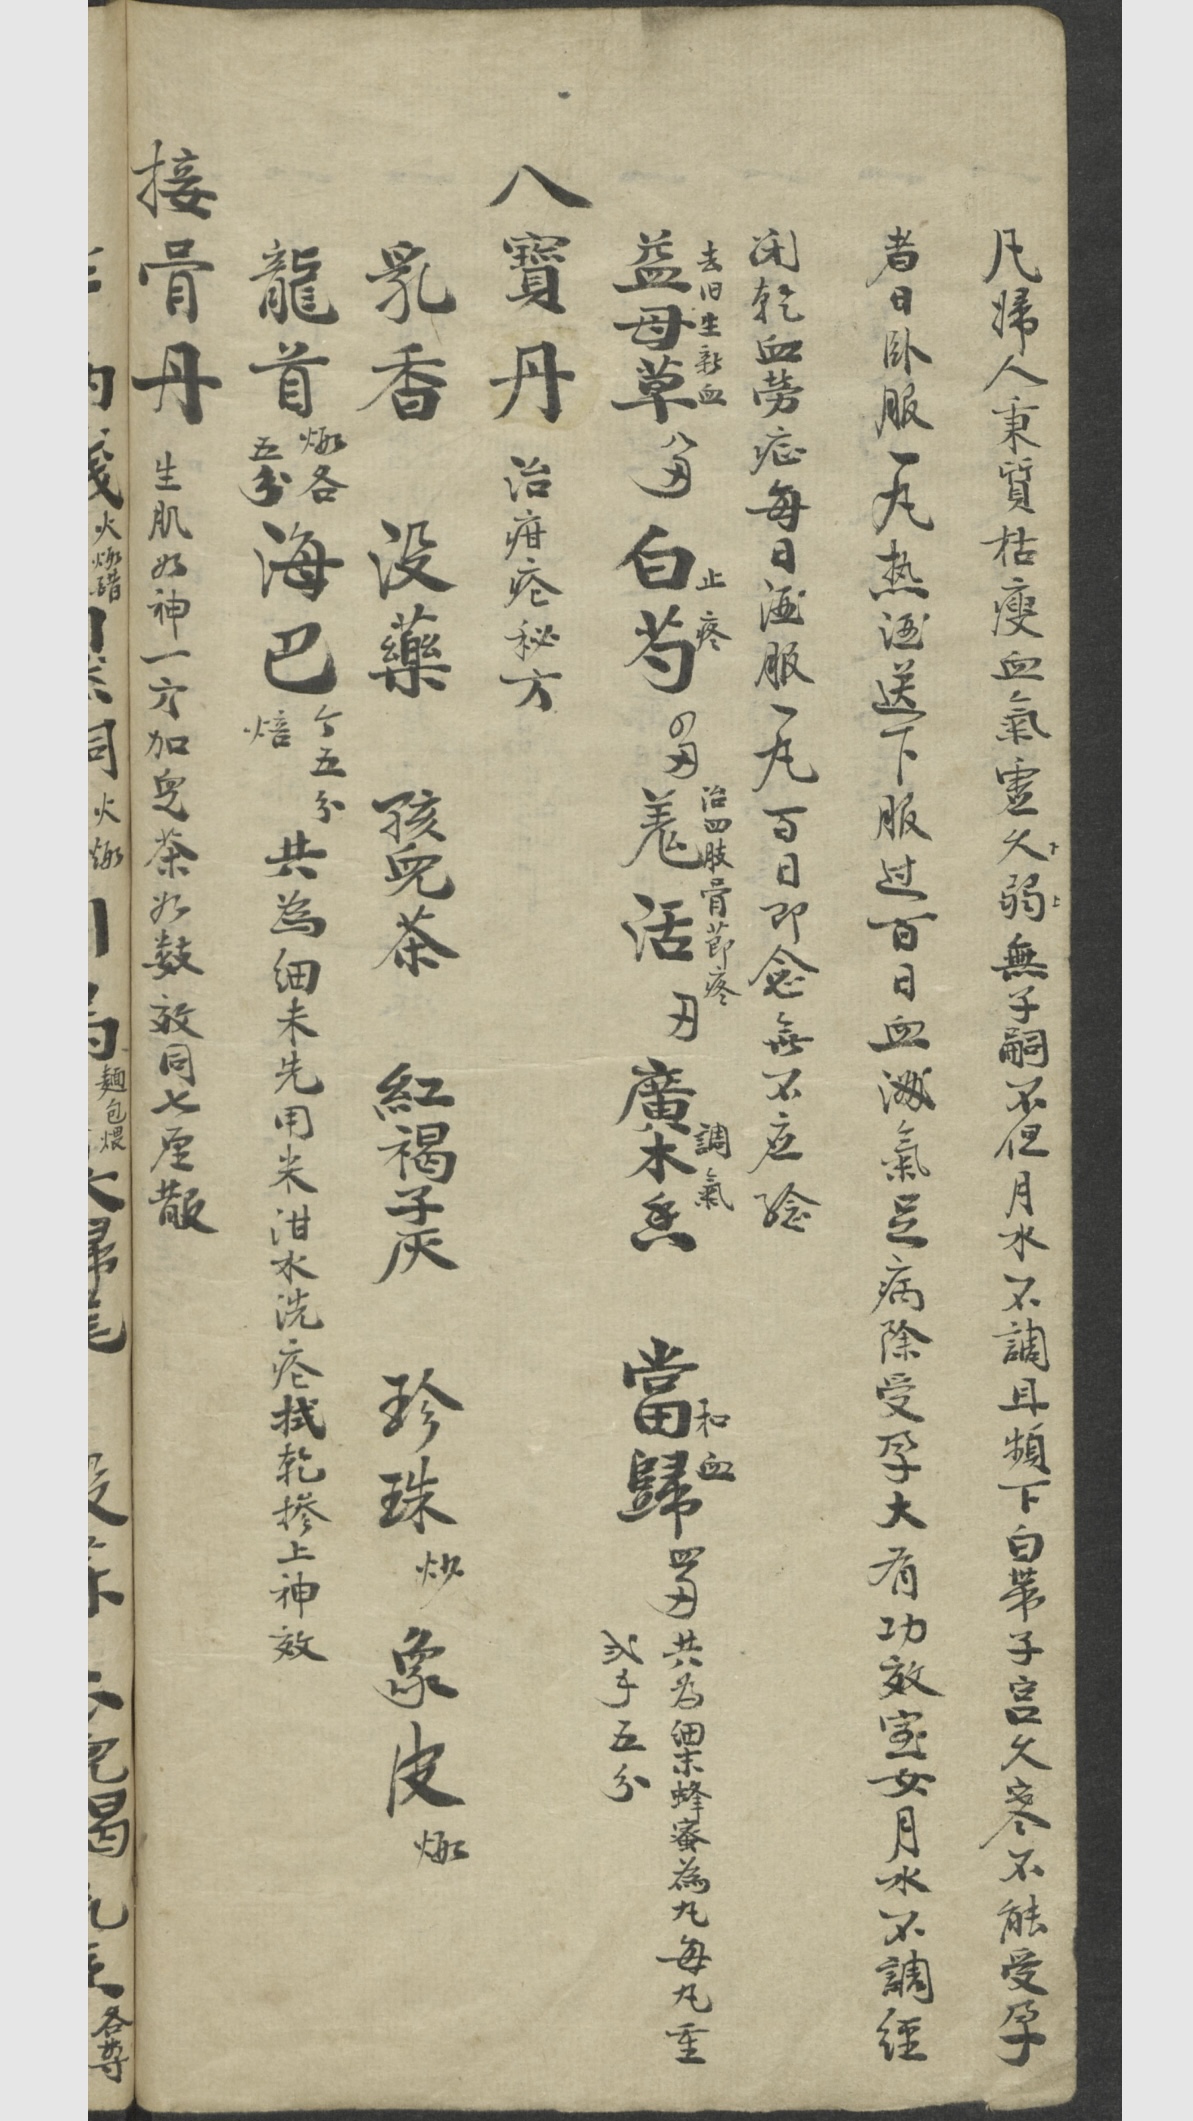 凡婦人秉質枯瘦血氣虛久弱無子嗣不但月水不調且頻下白帶子宮久寒不能受孕
者日卧服一丸热酒送下服过百日血滋氣足病除受孕大有功效室女月水不調經
闭乾血劳症每日酒服一丸百日即念無不应騐
去旧生新血 止疼 治四肢骨節疼 調氣 和血
益母草 白芍 羗活 廣木香 當歸 共為細末蜂蜜為丸每丸重
弍手五分
八寶丹 治疳疮秘方
乳香 没藥 孩兒茶 紅褐子灰 珍珠炒 象皮煅
龍首煅各五分 海巴个五分焙 共為細末先用米泔水洗疮拭乾摻上神效
接骨丹 生肌如神一方加兒茶如数效同七厘散
火煅醋 火煅 麵包煨 歸尾 各